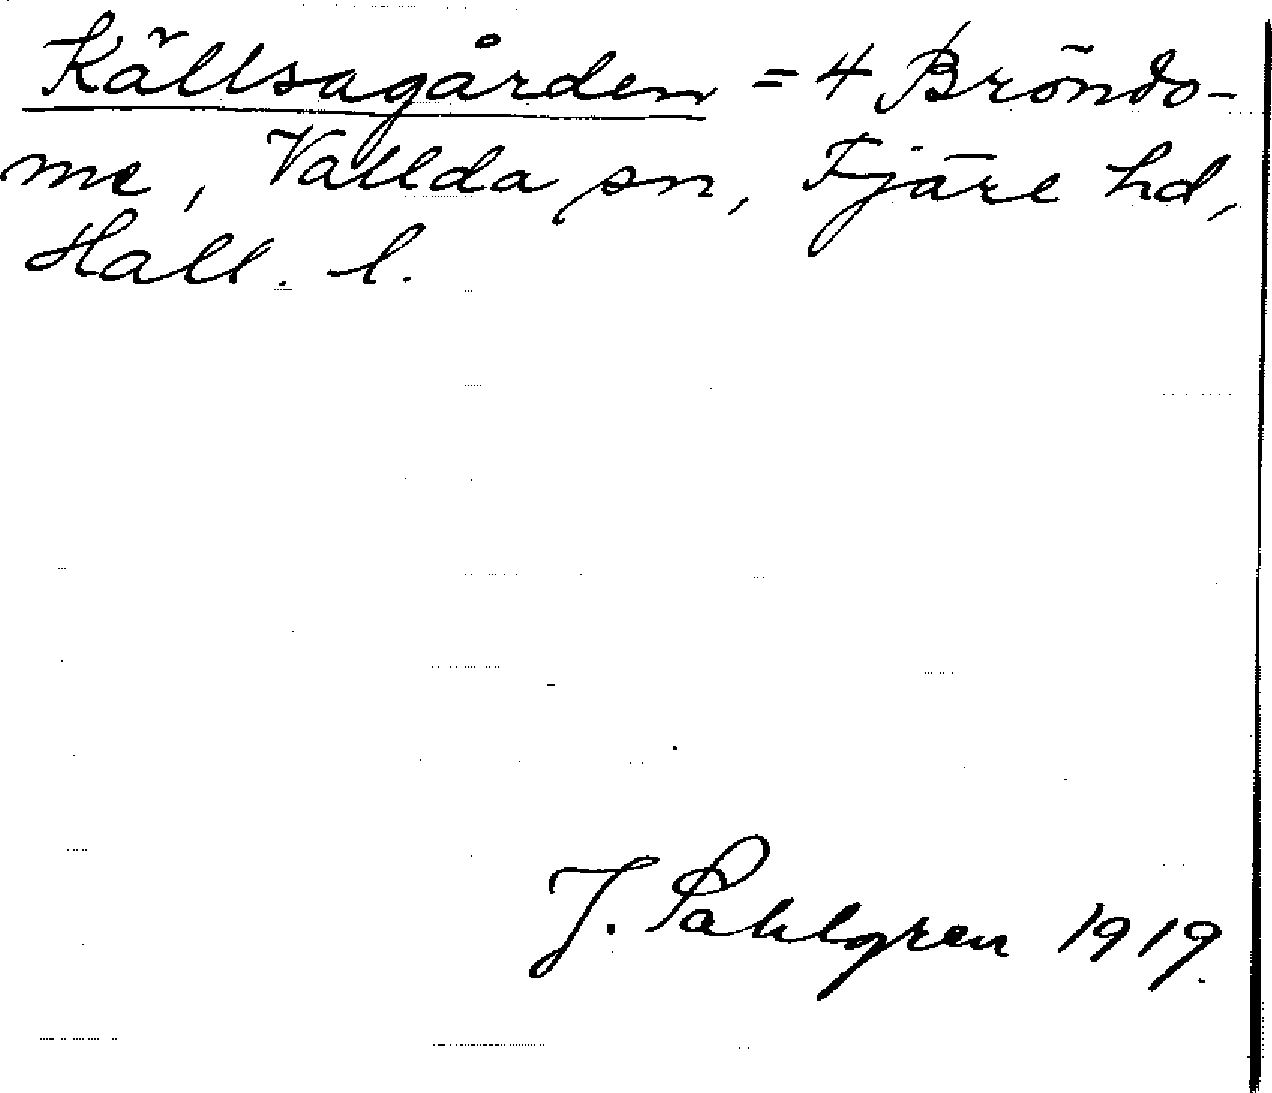 Källsagården = 4 Bröndo-
me, Vallda sn, Fjäre hd,
Hall. l.
J. Sahlgren 1919.